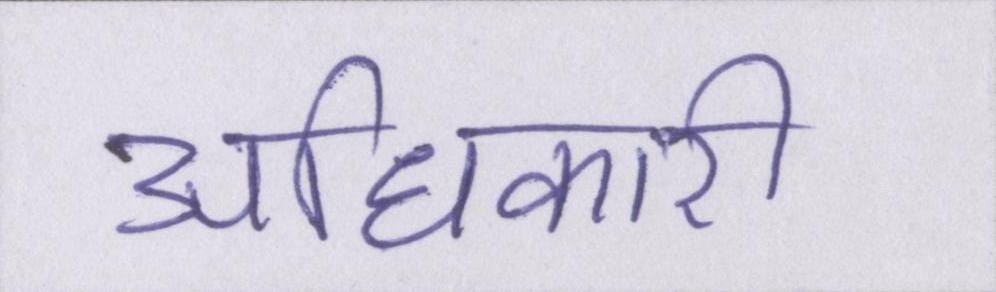 अधिकारी